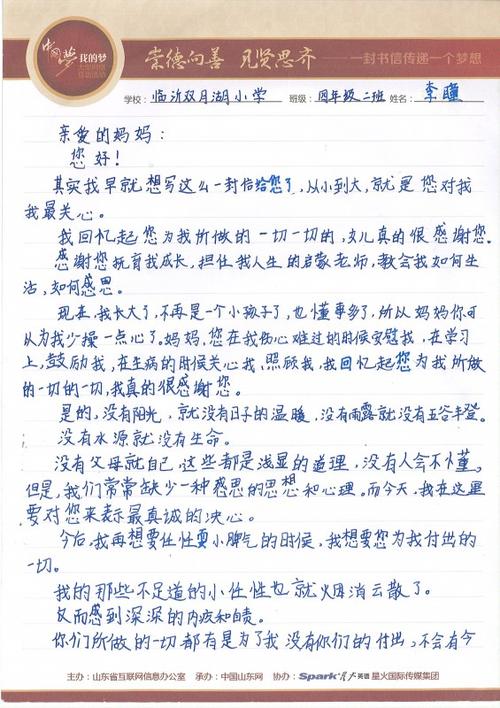 中国梦 我的梦
崇德向善 见贤思齐 一封书信传递一个梦想
学校：临沂双月湖小学 班级：四年级二班 姓名：李瞳
亲爱的妈妈：
您好！
其实我早就想写这么一封信给您了，从小到大，就是您对我
我最关心。
我回忆起您为我所做的一切一切的，女儿真的很感谢您。
感谢您抚育我成长，担任我人生的启蒙老师，教会我如何生
活，如何感恩。
现在，我长大了，不再是一个小孩子了，也懂事多了，所以妈妈你可
从为我少操一点心了。妈妈，您在我伤心难过的时候安慰我，在学习
上，鼓励我，在生病的时候关心我、照顾我，我回忆起您为我所做
的一切的一切，我真的很感谢您。
是的，没有阳光，就没有日子的温暖，没有雨露就没有五谷丰登。
没有水源就没有生命。
没有父母就自己，这些都是浅显的道理，没有人会不懂。
但是，我们常常缺少一种感恩的思想和心理。而今天，我在这里
要对您来表示最真诚的决心。
今后，我再想要任性耍小脾气的时候，我想要您为我付出的
一切。
我的那些不足道的小任性也就烟消云散了。
反而感到深深的内疚和自责。
你们所做的一切都有是为了我没有你们的付出，不会有今
主办：山东省互联网信息办公室 承办：中国山东网 协办：Spark星火英语 星火国际传媒集团